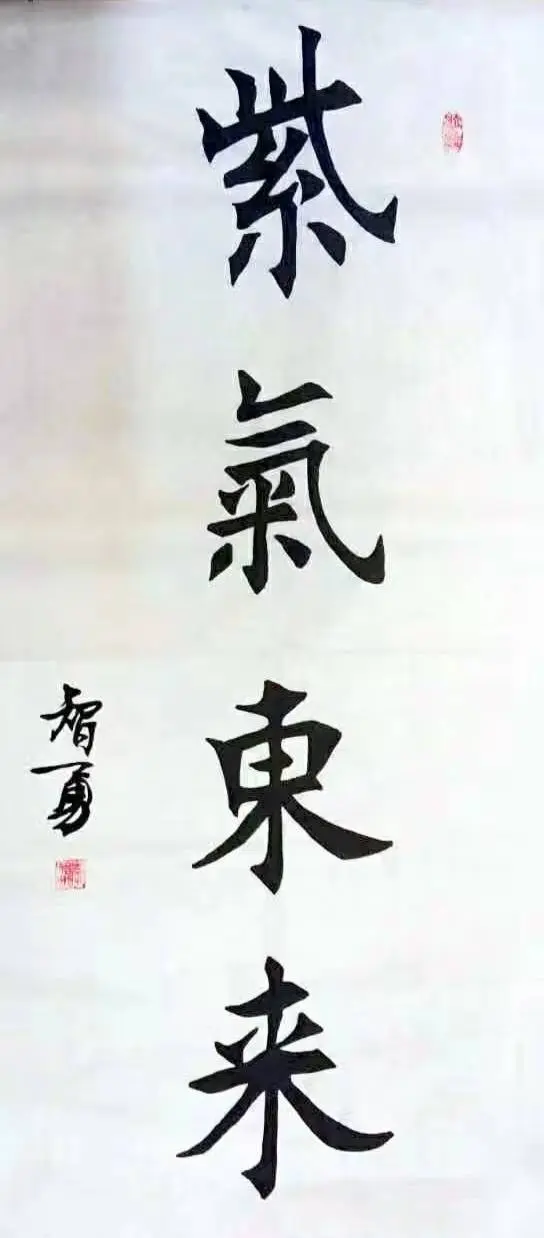 紫氣東来
智勇